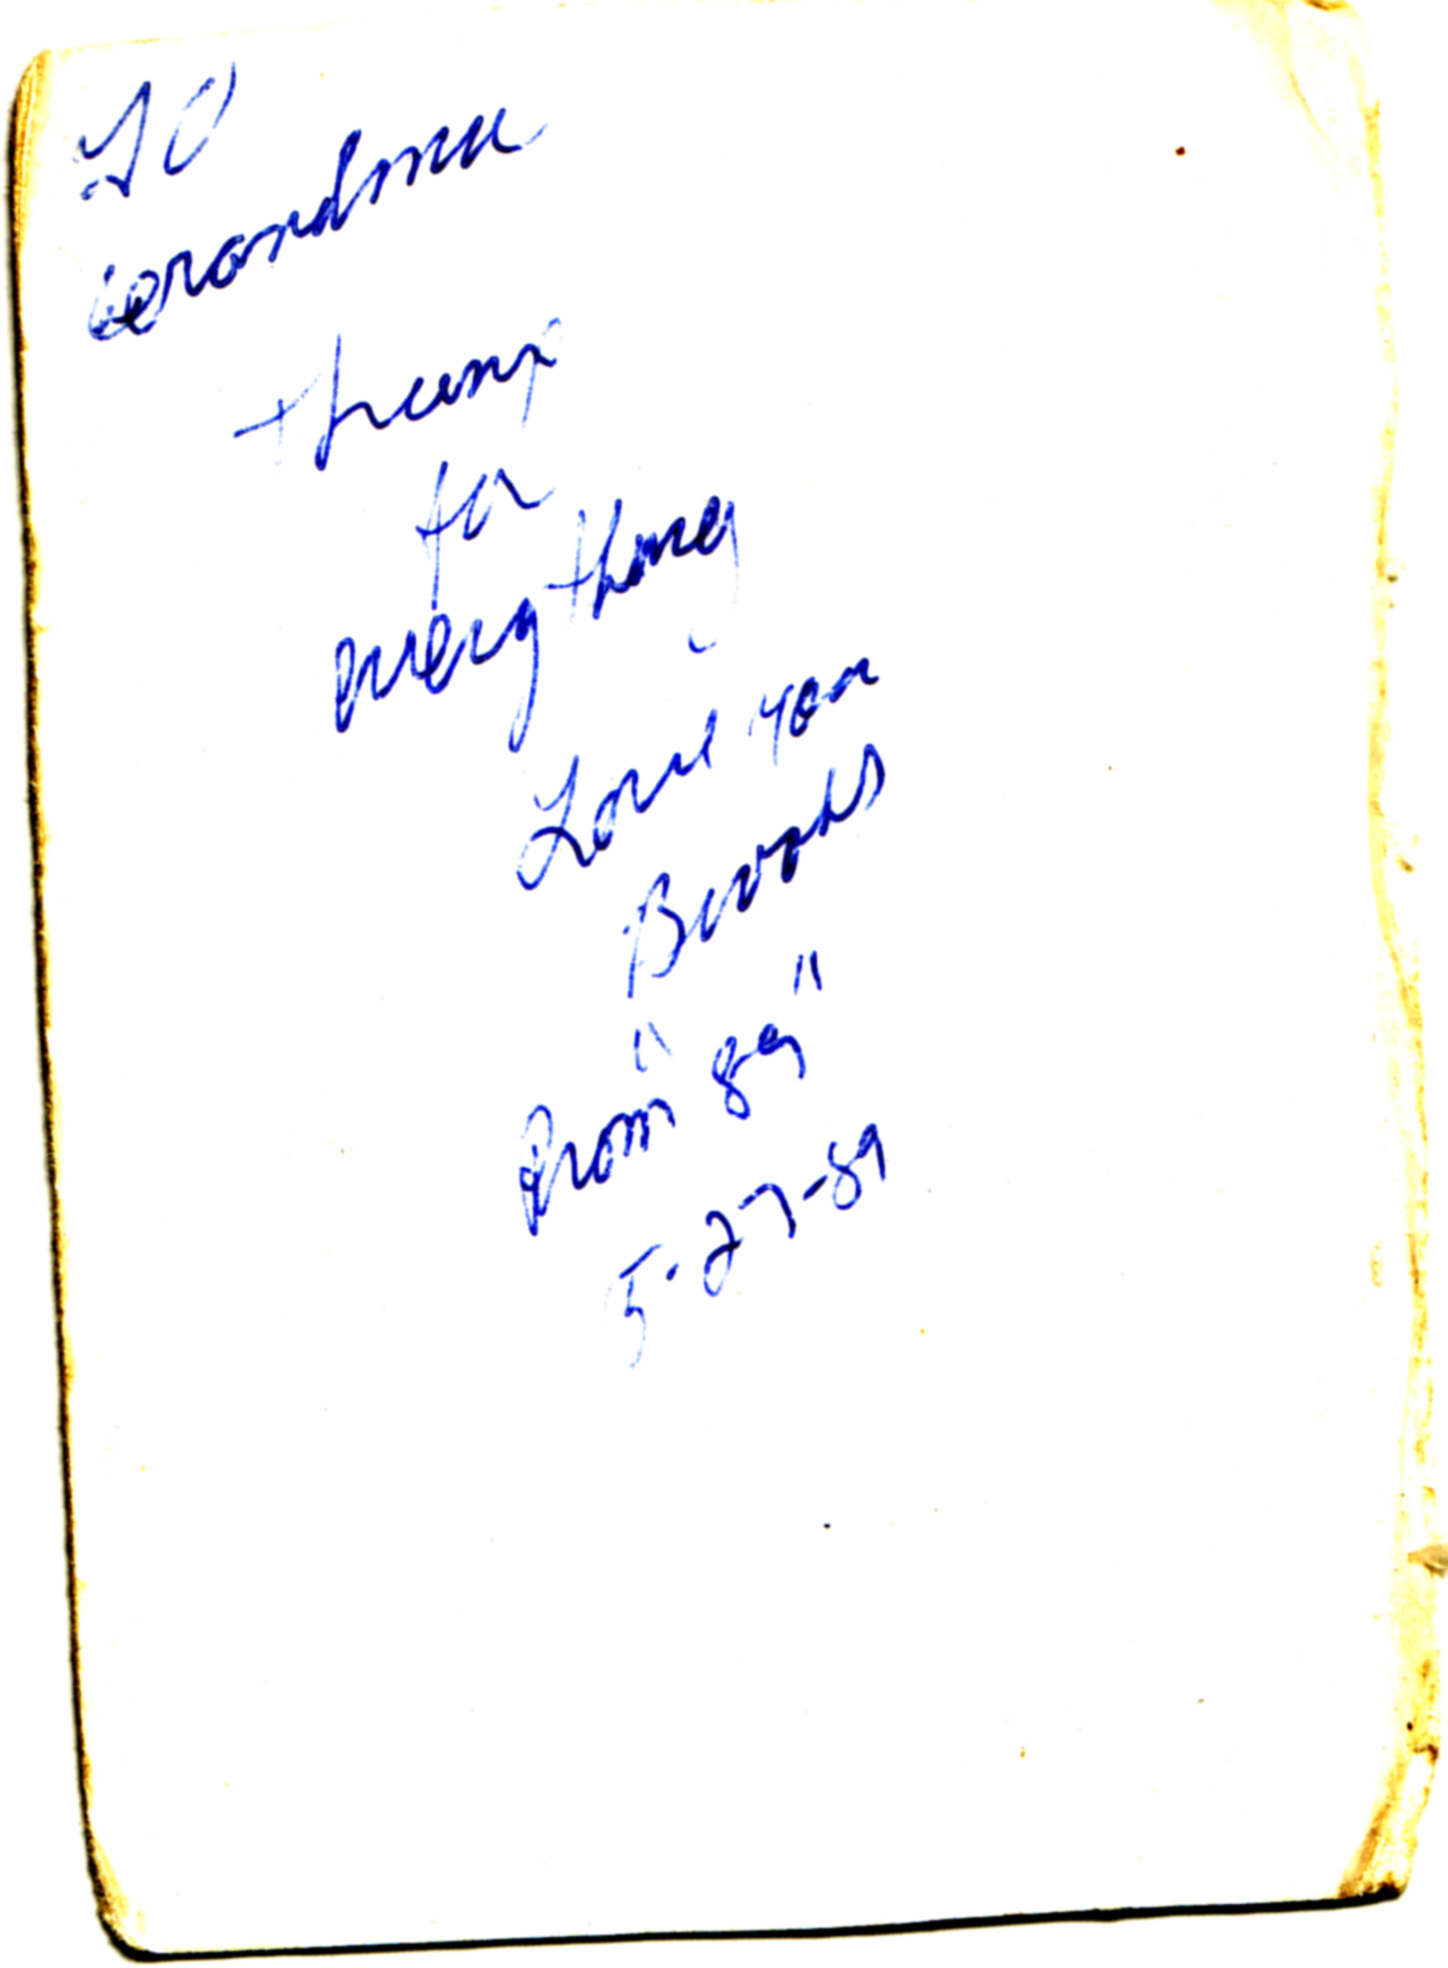 To
Grandma
thanx
for
everything
Love you
Brooks
"
Prom 89"
5-27-89